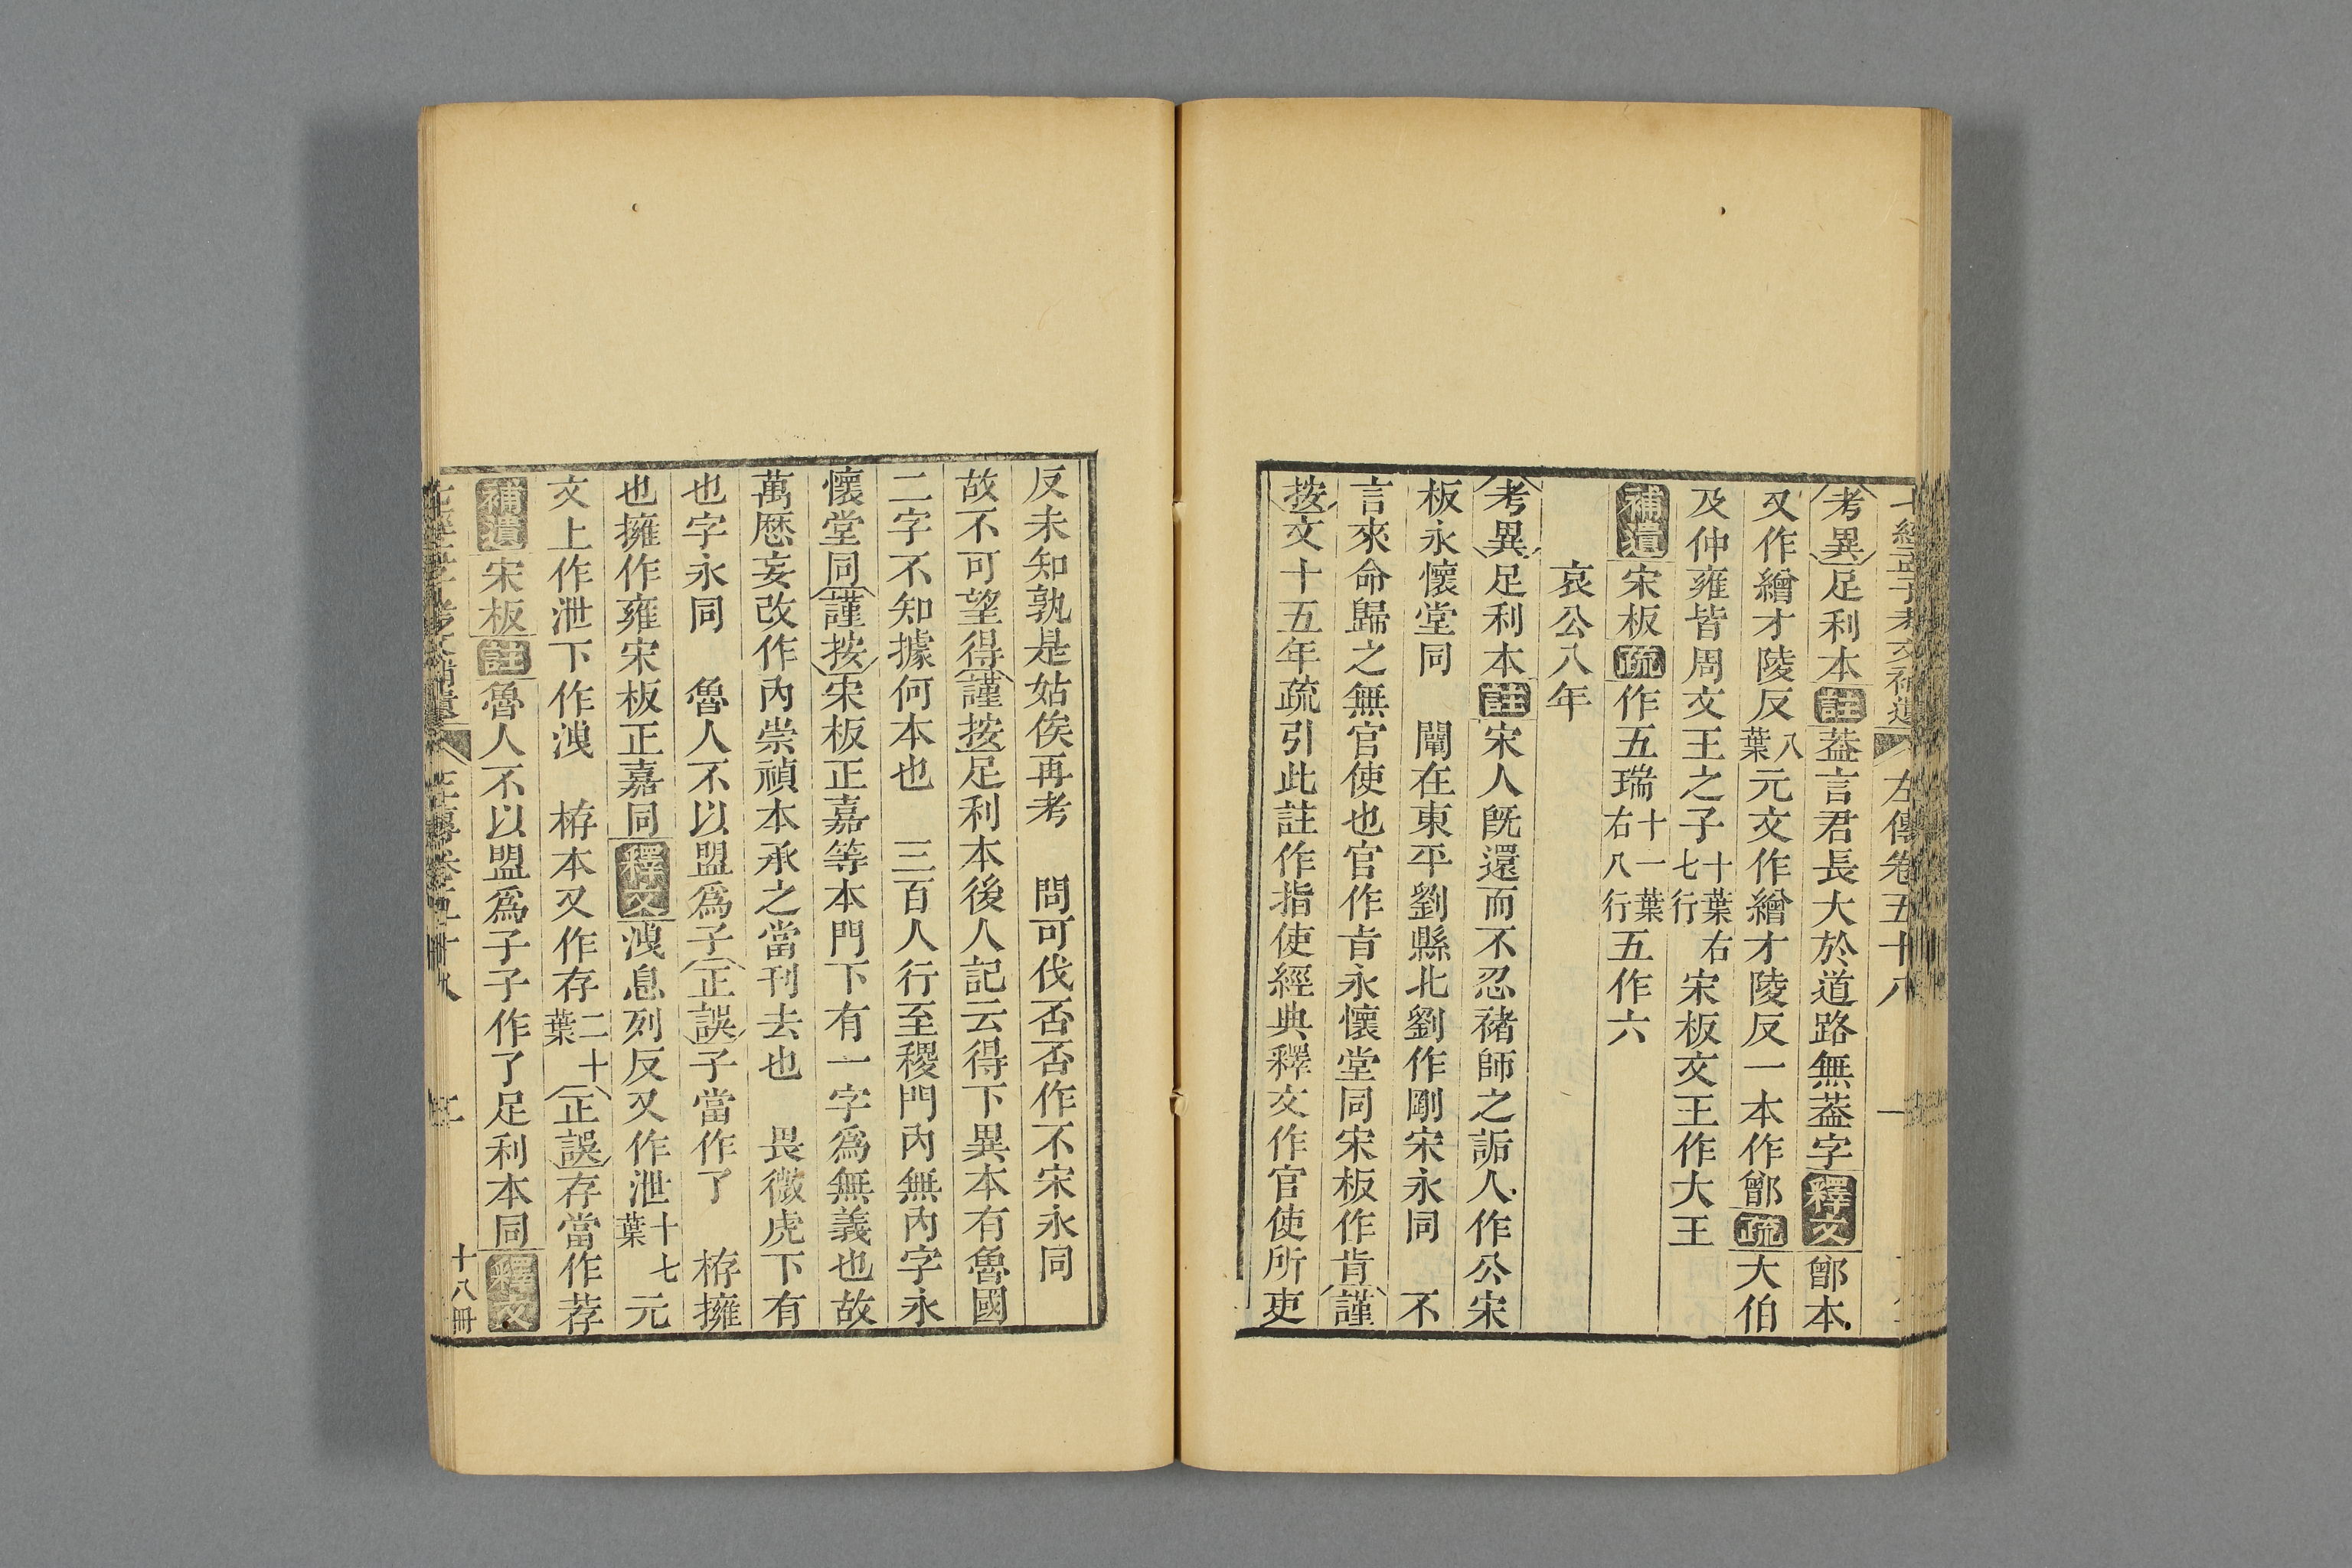 七經孟子考文補遺 左傳卷五十八 一
考異足利本註葢言君長大於道路無葢字釋文鄫本
又作繒才陵反八葉元文作繒才陵反一本作鄫疏大伯
及仲雍皆周文王之子十葉右七行宋板文王作大王
補遺宋板疏作五瑞十一葉右八行五作六
哀公八年
考異足利本註宋人旣還而不忍褚師之詬人作公宋
板永懷堂同 闡在東平劉縣北劉作剛宋永同 不
言來命歸之無官使也官作旨永懷堂同宋板作肯謹
按文十五年疏引此註作指使經典釋文作官使所吏
反未知孰是姑俟再考 問可伐否否作不宋永同
故不可望得謹按足利本後人記云得下異本有魯國
二字不知據何本也 三百人行至稷門內無內字永
懷堂同謹按宋板正嘉等本門下有一字爲無義也故
萬曆妄改作內崇禎本承之當刊去也 畏微虎下有
也字永同 魯人不以盟爲子正誤子當作了 栫擁
也擁作雍宋板正嘉同釋文洩息列反又作泄十七葉元
文上作泄下作洩 栫本又作存二十葉正誤存當作荐
補遺宋板註魯人不以盟爲子子作了足利本同釋文
十八冊